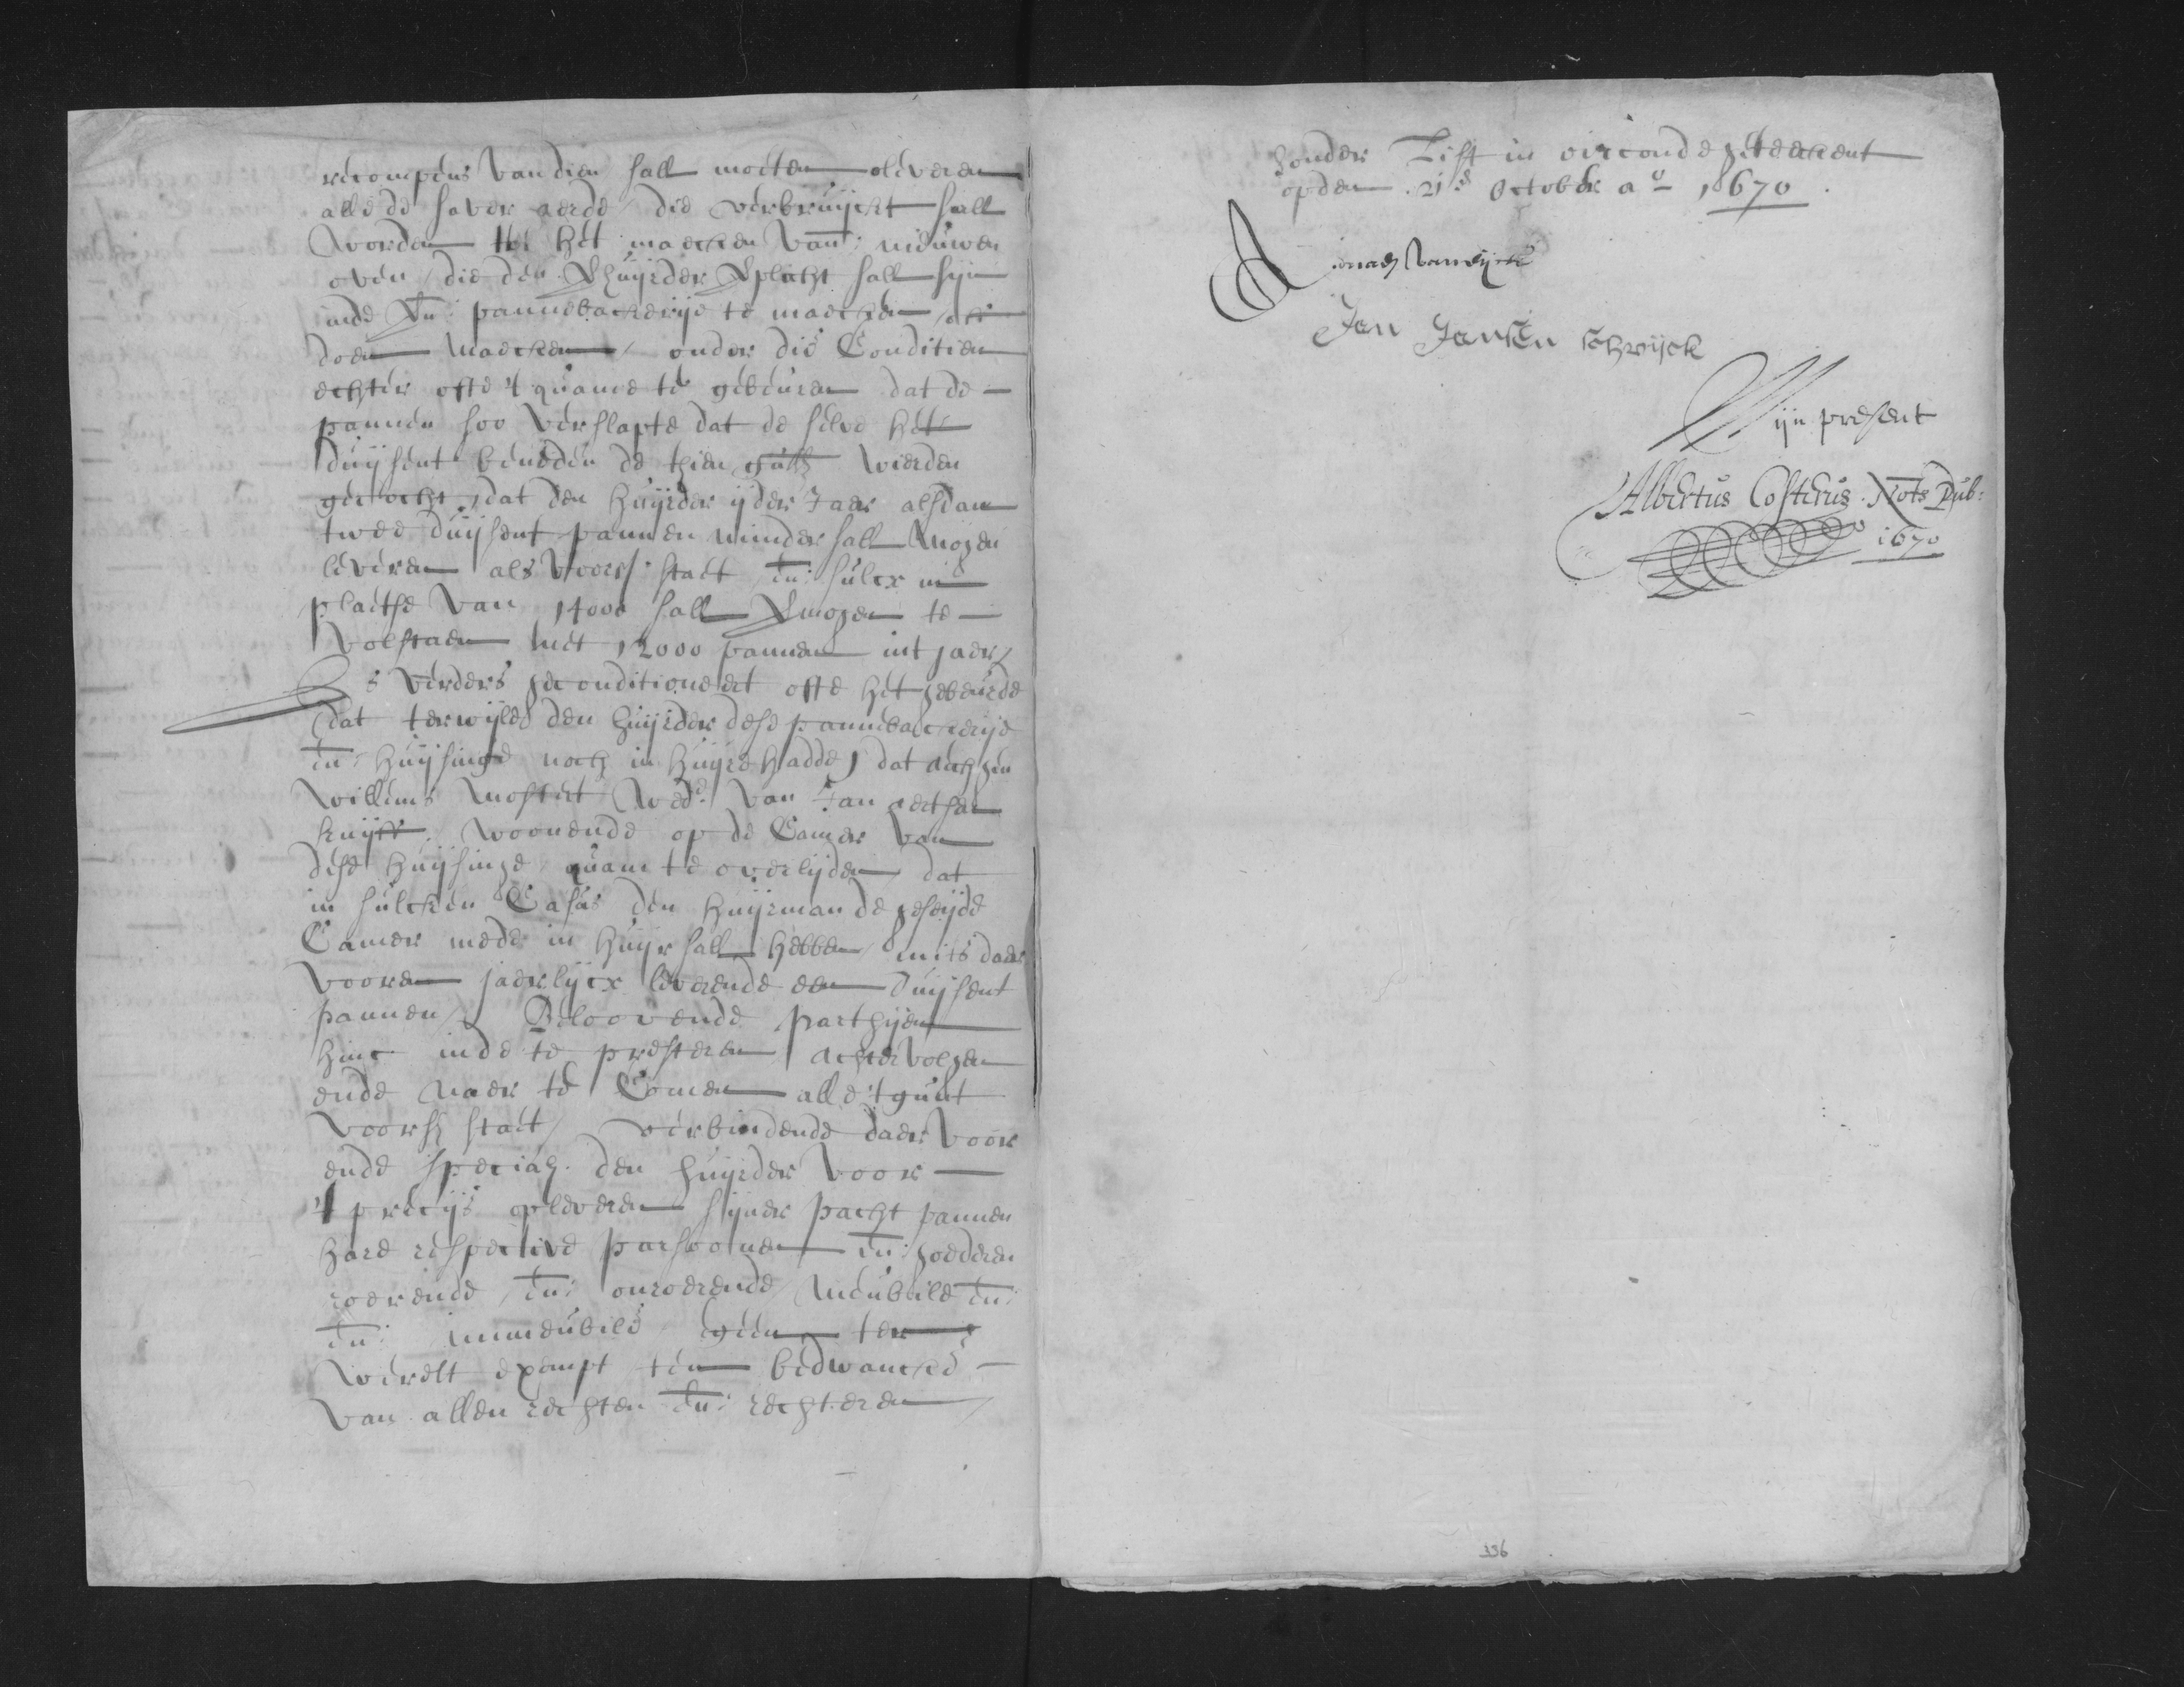 recompens van dien sall moeten leveren
alle de haver aerde die verbruyckt sall
worden tot het maecken van nieuwen
oven, die den huyrder verplicht sall sijn
inde pannebackerije te maecken ofte
doen maecken, onder die Conditien
echter ofte 't quame te gebeuren dat de
pannen soo verslapte dat de selve het
duijsent beneden de thien guld wierden
gecocht, dat den huyrder ijder Jaer alsdan
twee duijsent pannen minder sall mogen
leveren als voors: staet en: sulcx in
plaetse van 14000 sall mogen te
volstaen met 12000 pannen int jaer,
Is verders geconditioneert ofte het gebeurde
dat terwijle den huyrder dese pannebackerije
en: huijsinge noch in huyre hadde, dat
Willems Mostert Wede. van Jan aertsen
kuijck, woonende op de Camer van
dese huijsinge quam te overlijden, dat
in sulcken Casus den huyrman de geseijde
Camer mede in huyr sall hebben, mits daer
vooren jaerlijcx leverende een duijsent
pannen, Beloovende parthijen
hinc inde te presteren achtervolgen
ende naer te Comen alle 't gunt
voorsz staet, verbindende daer voor
ende speciael den huyrder voor
't precijs opleveren sijner pacht pannen
hare respective persoonen en: goederen
roerende, en: onroerende, meubile en:
en: immeubile geen ter
werelt exempt ten bedwancke
van allen rechten en: rechteren
sonder list in oirconde geteeckent
opden 21e October ao 1670.
van wijck
Jan Jansen schwijck
Mijn present
Albertus Costerus. Nots Pub:
1670
336